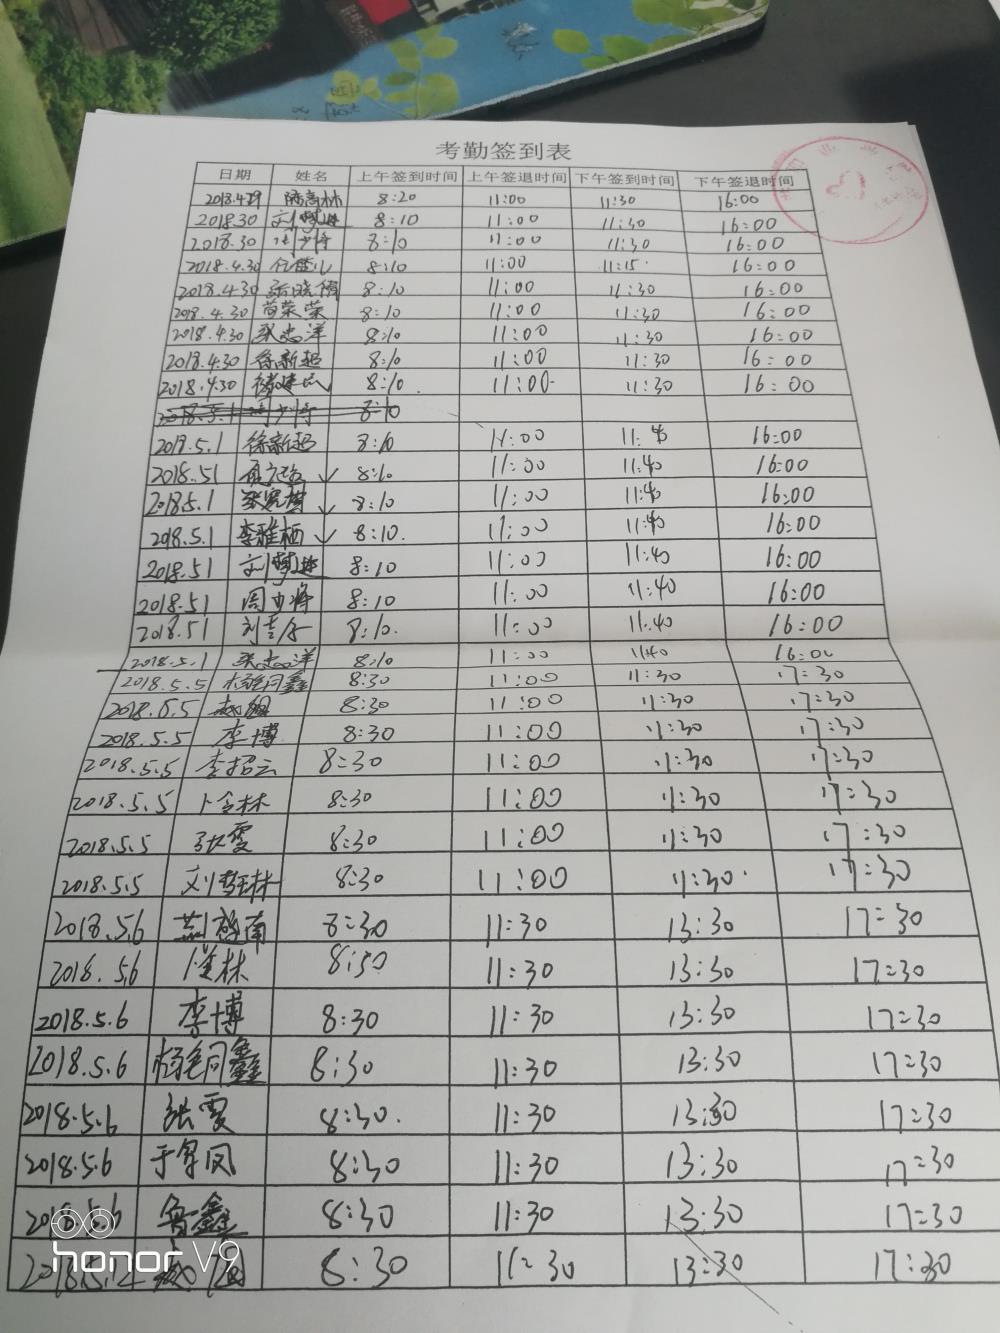 考勤签到表
日期 姓名 上午签到时间 上午签退时间 下午签到时间 下午签退时间
2018.4.29 8:20 11:00 11:30 16:00
2018.30 刘梦进 8:10 11:00 11:30 16:00
2018.30 8:10 11:00 11:30 16:00
2018.4.30 8:10 11:00 11:15 16:00
2018.4.30 8:10 11:00 11:30 16:00
2018.4.30 苗荣荣 8:10 11:00 11:30 16:00
2018.4.30 张志洋 8:10 11:00 11:30 16:00
2018.4.30 徐新超 8:10 11:00 11:30 16:00
2018.4.30 8:10 11:00 11:30 16:00
2018.5.1 8:10
2018.5.1 徐新超 8:10 11:00 11:40 16:00
2018.51 8:10 11:00 11:40 16:00
2018.5.1 8:10 11:00 11:40 16:00
2018.5.1 李雅栖 8:10 11:00 11:40 16:00
2018.51 刘梦进 8:10 11:00 11:40 16:00
2018.51 8:10 11:00 11:40 16:00
2018.51 8:10 11:00 11:40 16:00
2018.5.1 张志洋 8:10 11:00 11:40 16:00
2018.5.5 杨毛同鑫 8:30 11:00 11:30 17:30
2018.5.5 8:30 11:00 11:30 17:30
2018.5.5 李博 8:30 11:00 11:30 17:30
2018.5.5 李招云 8:30 11:00 11:30 17:30
2018.5.5 8:30 11:00 11:30 17:30
2018.5.5 张雯 8:30 11:00 11:30 17:30
2018.5.5 8:30 11:00 11:30 17:30
2018.5.6 8:30 11:30 13:30 17:30
2018.5.6 8:30 11:30 13:30 17:30
2018.5.6 李博 8:30 11:30 13:30 17:30
2018.5.6 杨毛同鑫 8:30 11:30 13:30 17:30
2018.5.6 张雯 8:30 11:30 13:30 17:30
2018.5.6 8:30 11:30 13:30 17:30
2018.5.6 鲁鑫 8:30 11:30 13:30 17:30
2018.5.12 8:30 11:30 13:30 17:30
honor V9